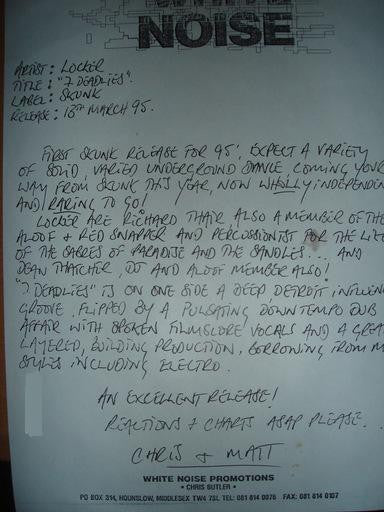 WHITE
NOISE
ARTIST : LOCKER
TITLE : "7 DEADLIES".
LABEL : SKUNK
RELEASE : 13TH MARCH 95.
FIRST SKUNK RELEASE FOR 95', EXPECT A VARIETY
OF SOLID, VARIED UNDERGROUND DANCE, COMING YOUR
WAY FROM SKUNK THIS YEAR, NOW WHOLLY INDEPENDE
AND RARING TO GO!
LOCKER ARE RICHARD THAIR ALSO A MEMBER OF THE
ALOOF + RED SNAPPER AND PERCUSSIONIST FOR THE LIKE
OF THE SABRES OF PARADISE AND THE SANDLES... AND
DEAN THATCHER, DJ AND ALOOF MEMBER ALSO!
"7 DEADLIES" IS ON ONE SIDE A DEEP DETROIT INFLUENC
GROOVE, FLIPPED BY A PULSATING DOWNTEMPO DUB
AFFAIR WITH SPOKEN FILMSCORE VOCALS AND A GREAT
LAYERED, BUILDING PRODUCTION, BORROWING FROM M
STYLES INCLUDING ELECTRO.
AN EXCELLENT RELEASE!
REACTIONS + CHARTS ASAP PLEASE.
CHRIS + MATT
WHITE NOISE PROMOTIONS
• CHRIS BUTLER •
PO BOX 314, HOUNSLOW, MIDDLESEX TW4 7SL TEL: 081 814 0076 FAX: 081 814 0107